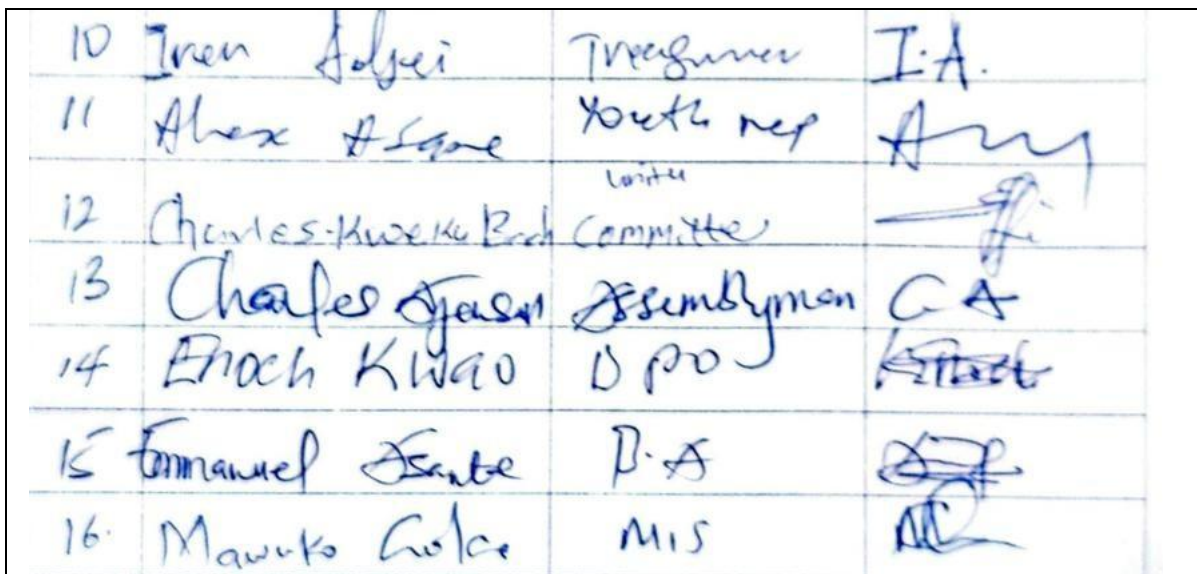 10 Iren Adjei Treasurer I.A.
11 Alex Asare Youth rep
12 Charles-Kweku Unit Committe
13 Charles Ajensu Assemblyman C A
14 Enoch Kwao DPO
15 Emmanuel Asante D.A
16. Mawuko MIS